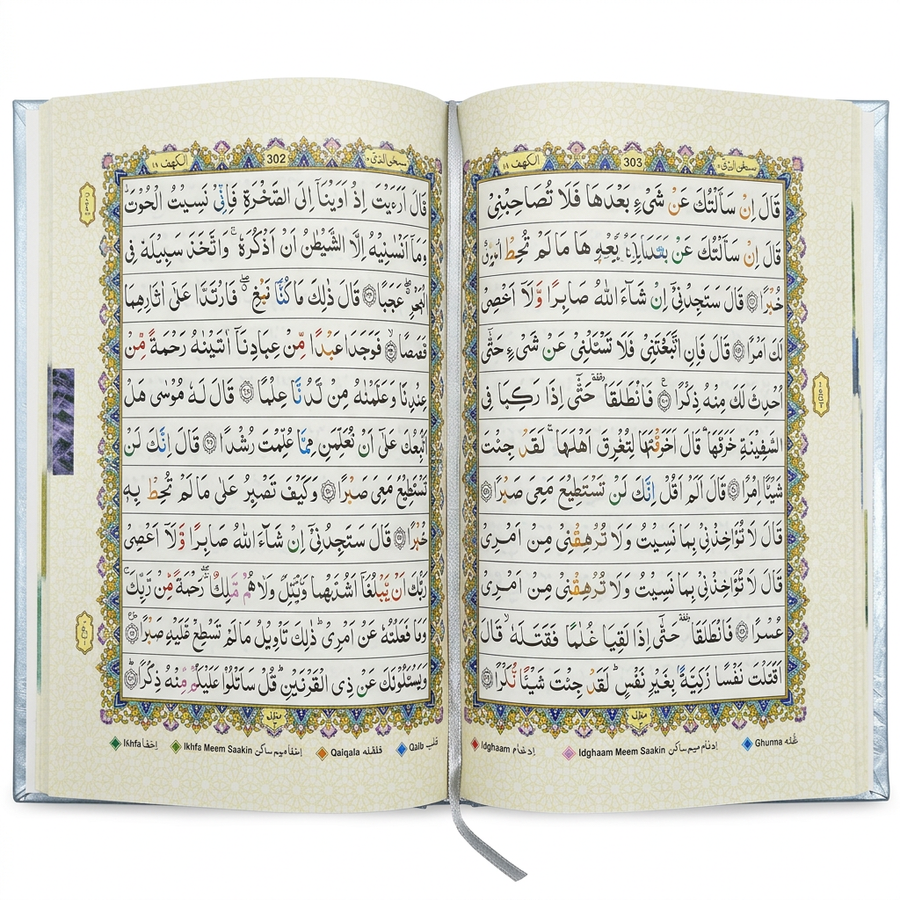 الكهف ١٨
302
سبحن الذى ١٥
قَالَ اَرَءَيْتَ اِذْ اَوَيْنَآ اِلَى الصَّخْرَةِ فَاِنِّىْ نَسِيْتُ الْحُوْتَ
وَمَآ اَنْسٰنِيْهُ اِلَّا الشَّيْطٰنُ اَنْ اَذْكُرَهٗ ۚ وَاتَّخَذَ سَبِيْلَهٗ فِى
الْبَحْرِ عَجَبًا قَالَ ذٰلِكَ مَا كُنَّا نَبْغِ فَارْتَدَّا عَلٰٓى اٰثَارِهِمَا
قَصَصًا فَوَجَدَا عَبْدًا مِّنْ عِبَادِنَآ اٰتَيْنٰهُ رَحْمَةً مِّنْ
عِنْدِنَا وَعَلَّمْنٰهُ مِنْ لَّدُنَّا عِلْمًا قَالَ لَهٗ مُوْسٰى هَلْ
اَتَّبِعُكَ عَلٰٓى اَنْ تُعَلِّمَنِ مِمَّا عُلِّمْتَ رُشْدًا قَالَ اِنَّكَ لَنْ
تَسْتَطِيْعَ مَعِىَ صَبْرًا وَكَيْفَ تَصْبِرُ عَلٰى مَا لَمْ تُحِطْ بِهٖ
خُبْرًا قَالَ سَتَجِدُنِىْٓ اِنْ شَآءَ اللّٰهُ صَابِرًا وَّلَآ اَعْصِىْ
رَبُّكَ اَنْ يَّبْلُغَآ اَشُدَّهُمَا رَحْمَةً مِّنْ رَّبِّكَ
وَمَا فَعَلْتُهٗ عَنْ اَمْرِىْ ذٰلِكَ تَاْوِيْلُ مَا لَمْ تَسْطِعْ عَّلَيْهِ صَبْرًا
وَيَسْـَٔلُوْنَكَ عَنْ ذِى الْقَرْنَيْنِ قُلْ سَاَتْلُوْا عَلَيْكُمْ مِّنْهُ ذِكْرًا
Ikhfa اِخفا
Ikhfa Meem Saakin اخفا ميم ساكن
Qalqala قلقله
Qalb قلب
الكهف ١٨
303
سبحن الذى ١٥
قَالَ اِنْ سَاَلْتُكَ عَنْ شَىْءٍ بَعْدَهَا فَلَا تُصَاحِبْنِىْ
قَالَ اِنْ سَاَلْتُكَ عَنْ مَا لَمْ تُحِطْ
خُبْرًا قَالَ سَتَجِدُنِىْٓ اِنْ شَآءَ اللّٰهُ صَابِرًا وَّلَآ اَعْصِىْ
لَكَ اَمْرًا قَالَ فَاِنِ اتَّبَعْتَنِىْ فَلَا تَسْـَٔلْنِىْ عَنْ شَىْءٍ حَتّٰٓى
اُحْدِثَ لَكَ مِنْهُ ذِكْرًا فَانْطَلَقَا حَتّٰٓى اِذَا رَكِبَا فِى
السَّفِيْنَةِ خَرَقَهَا قَالَ اَخَرَقْتَهَا لِتُغْرِقَ اَهْلَهَا لَقَدْ جِئْتَ
شَيْـًٔا اِمْرًا قَالَ اَلَمْ اَقُلْ اِنَّكَ لَنْ تَسْتَطِيْعَ مَعِىَ صَبْرًا
قَالَ لَا تُؤَاخِذْنِىْ بِمَا نَسِيْتُ وَلَا تُرْهِقْنِىْ مِنْ اَمْرِىْ
قَالَ لَا تُؤَاخِذْنِىْ بِمَا نَسِيْتُ وَلَا تُرْهِقْنِىْ مِنْ اَمْرِىْ
عُسْرًا فَانْطَلَقَا حَتّٰٓى اِذَا لَقِيَا غُلٰمًا فَقَتَلَهٗ قَالَ
اَقَتَلْتَ نَفْسًا زَكِيَّةً بِغَيْرِ نَفْسٍ لَقَدْ جِئْتَ شَيْـًٔا نُّكْرًا
Idghaam ادغام
Idghaam Meem Saakin ادغام ميم ساكن
Ghunna غُنه